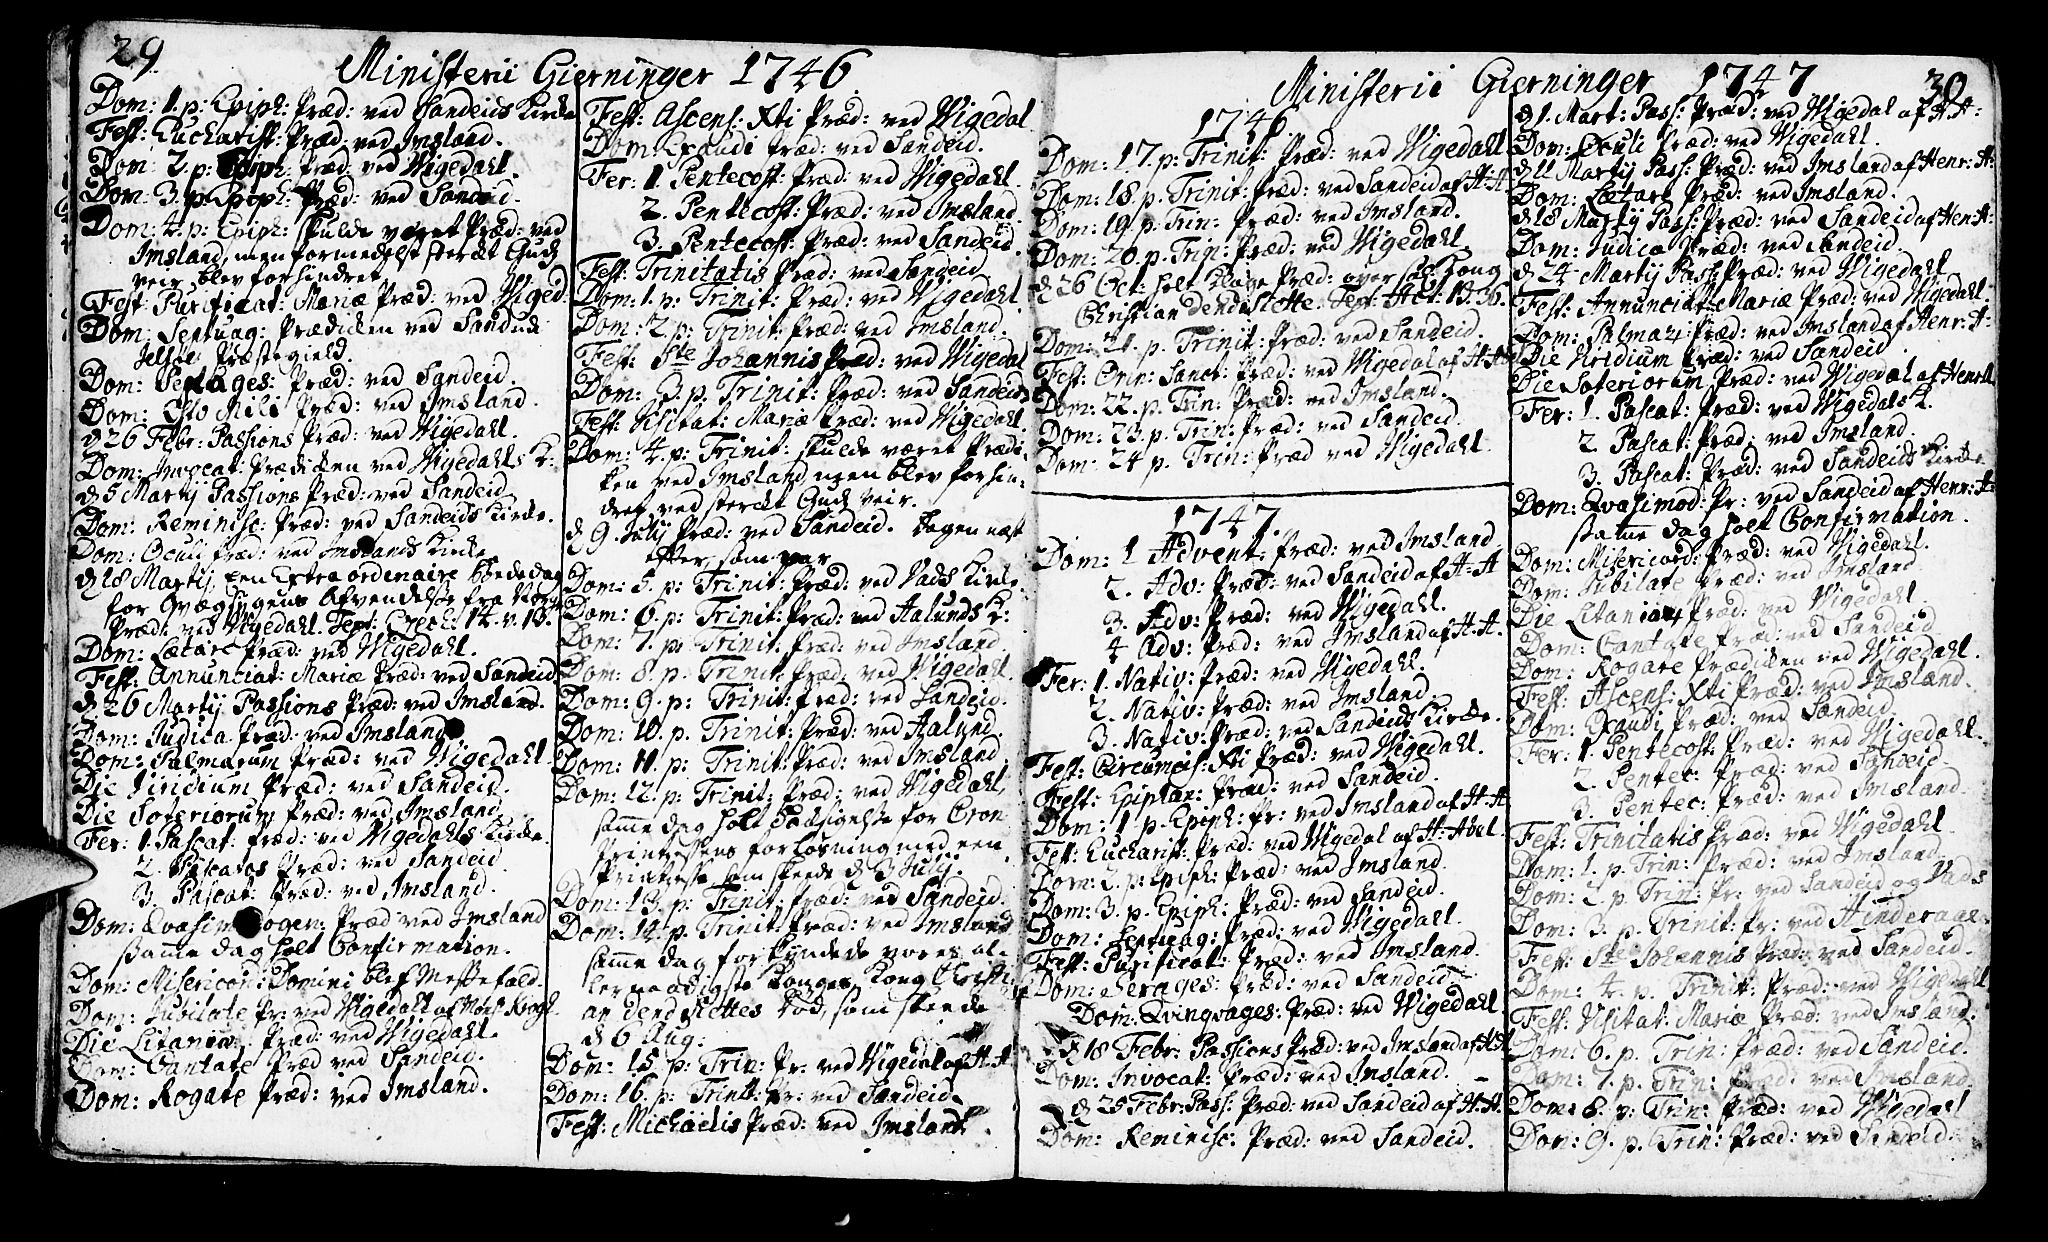 29
Ministerii Gierninger 1746
Dom: 1. p: Epiph: Præd: ved Sandeids Kirke
Fest: Eucharist: Præd: ved Imsland.
Dom: 2. p: Epiph: Præd: ved Wigedahl.
Dom: 3. p. Epiph: Præd: ved Sandeid.
Dom: 4. p: Epiph: skulde været Præd: ved
Imsland, men formedelst sterckt Guds
veir, blev forhindret
Fest: Purificat: Mariæ Præd: ved Wiged:
Dom: Septuag: Prædicken ved Sandnids
Jelsøe Præstegield.
Dom: Sexages: Præd: ved Sandeid.
Dom: Esto Mihi Præd: ved Imsland.
d 26 Febr: Passions Præd: ved Wigedahl.
Dom: Invocat: Prædicken ved Wigedahls K:
d 5 Martij Passions Præd: ved Sandeid
Dom: Reminisc: Præd: ved Sandeids Kirke.
Dom: Oculi Præd: ved Imslands Kirke
d 18 Martij, een Extra ordinaire Bededag
for Qvægsygens Afvendelse fra Norge
Præd: ved Wigedahl. Text: Ezech: 14. v. 13.
Dom: Lætare Præd: ved Wigedahl.
Fest: Annunciat: Mariæ Præd: ved Sandeid.
d 26 Martij Passions Præd: ved Imsland.
Dom: Judica Præd: ved Imsland
Dom: Palmarum Præd: ved Wigedahl.
Die Viridium Præd: ved Sandeid.
Die Soteriorum Præd: ved Imsland
Fer: 1. Pascat: Præd: ved Wigedahls Kirke.
2. Pascatos Præd: ved Sandeid
3. Pascat: Præd: ved Imsland.
Dom: Qvasimodogen: Præd ved Imsland
samme dag holt Confirmation.
Dom: Misericor: Domini blef Messefald.
Dom: Jubilate Pr: ved Wigedahl af Mons: Krogh
Die Litaniar: Præd: ved Wigedahl.
Dom: Cantate Præd ved Sandeid.
Dom: Rogate Præd: ved Imsland.
Fest: Ascens: Xti Præd: ved Wigedal
Dom: Exaudi Præd: ved Sandeid.
Fer: 1. Pentecost: Præd: ved Wigedahl.
2. Pentecost: Præd: ved Imsland.
3. Pentecost: Præd: ved Sandeid.
Fest: Trinitatis Præd: ved Sandeid
Dom: 1. p: Trinit: Præd: ved Wigedahl
Dom: 2. p: Trinit: Præd: ved Imsland.
Fest: Ste Johannis Præd: ved Wigedal
Dom: 3. p. Trinit: Præd: ved Sandeid.
Fest: Visitat: Mariæ Præd: ved Wigedahl.
Dom: 4. p: Trinit: skulde været Prædi-
ken ved Imsland, men blev forhin-
dret ved sterckt Guds veir.
d 9. Julij Præd: ved Sandeid. Dagen næst
efter, som var
Dom: 5. p: Trinit: Præd: ved Vads Kirke.
Dom: 6. p: Trinit: Præd: ved Aalunds K:
Dom: 7. p: Trinit: Præd: ved Imsland
Dom: 8. p. Trinit: Præd: ved Wigedahl.
Dom: 9. p: Trinit: Præd: ved Sandeid.
Dom: 10. p. Trinit: Præd: ved Aalund.
Dom: 11. p: Trinit: Præd: ved Imsland.
Dom: 12. p: Trinit: Præd: ved Wigedahl,
samme dag holt Tacksigelse for Cron
Printzessens forløsning med een
Printzesse, som skeede d 3 Julij.
Dom: 13. p: Trinit: Præd: ved Sandeid.
Dom: 14. p. Trinit: Præd: ved Imsland
samme dag forkyndede vores al-
lernaadigste Konges, Kong Christi
an dend siettes død, som skeede
d 6 Aug:
Dom: 15. p: Trin: Pr: ved Wigedal af H: A:
Dom: 16. p: Trinit: Pr: ved Sandeid.
Fest: Michaelis Præd: ved Imsland.
Ministerii Gierninger 1747
30
1746
Dom: 17. p: Trinit: Præd: ved Wigedahl
Dom: 18. p. Trinit: Præd: ved Sandeid af H: A:
Dom: 19. p: Trin: Præd: ved Imsland.
Dom: 20. p: Trin: Præd: ved Wigedahl.
d 26 Oct: holt Klage Præd: over Sal: Kong
Christian dend siette. Text: Act: 13. 36.
Dom: 21. p. Trinit: Præd: ved Sandeid.
Fest: Omn: Sanct: Præd: ved Wigedal af H: A
Dom: 22. p. Trin: Præd: ved Imsland.
Dom: 23. p. Trin: Præd: ved Sandeid.
Dom: 24 p. Trin: Præd ved Wigedahl.
1747.
Dom: 1 Advent: Præd: ved Imsland.
2. Adv: Præd: ved Sandeid af H: A
3. Adv: Præd: ved Wigedahl.
4 Adv: Præd: ved Imsland af H: A.
Fer: 1. Nativ: Præd: ved Wigedahl.
2. Nativ: Præd: ved Imsland.
3. Nativ: Præd: ved Sandeids Kirke.
Fest: Circumcis: Xti Præd: ved Wigedahl.
Fest: Epiphan: Præd: ved Sandeid.
Dom: 1 p. Epiph: Pr: ved Imsland af H: A:
Fest: Eucharist: Præd: ved Wigedal af H: Abel.
Dom: 2. p: Epiph: Præd: ved Imsland.
Dom: 3. p. Epiph: Præd: ved Sandeid.
Dom: Septuag: Præd: ved Wigedahl.
Fest: Purificat: Præd: ved Imsland.
Dom: Sexages: Præd: ved Sandeid.
Dom: Qvinqvages: Præd: ved Wigedahl
d 18 Febr: Passions Præd: ved Imsland af H: A
Dom: Invocat: Præd: ved Imsland.
d 25 Febr: Pass: Præd: ved Sandeid af H: A:
Dom: Reminisc: Præd: ved Sandeid.
d 1. Mart: Pass: Præd: ved Wigedal af H: A:
Dom: Oculi Præd: ved Wigedahl.
d 11 Martij Pass: Præd: ved Imsland af Henr: A:
Dom: Lætare Præd: ved Imsland.
d 18 Martij Pass: Præd: ved Sandeid af Hen: A:
Dom: Judica Præd: ved Sandeid.
d 24 Martij Pass: Præd: ved Wigedahl
Fest: Annunciat: Mariæ Præd: ved Wigedahl.
Dom: Palmar: Præd: ved Imsland af Henr: A:
Die Viridium Præd: ved Sandeid
Die Soteriorum Præd: ved Wigedal af Henr: A
Fer: 1. Pascat: Præd: ved Wigedals K.
2. Pascat: Præd: ved Imsland.
3. Pascat: Præd: ved Sandeids Kirke
Dom: Qvasimod: Pr: ved Sandeid af Henr: A:
samme dag holt Confirmation.
Dom: Misericord: Præd: ved Wigedahl.
Dom: Jubilate Præd: ved Imsland.
Die Litaniar: Præd: ved Wigedahl
Dom: Cantate Præd: ved Sandeid
Dom: Rogate Prædicken ved Wigedahl.
Fest: Ascens: Xti Præd: ved Imsland.
Dom: Exaudi Præd: ved Sandeid.
Fer: 1. Pentecost: Præd: ved Wigedahl.
2. Pentec: Præd: ved Sandeid.
3. Pentec: Præd: ved Imsland.
Fest: Trinitatis Præd: ved Wigedahl
Dom: 1. p. Trin: Præd: ved Imsland.
Dom: 2. p. Trin: Pr: ved Sandeid og Vads
Dom: 3. p. Trinit: Pr: ved Hinderaae
Fest: Ste Johannis Præd: ved Sandeid.
Dom: 4. p. Trinit: Præd: ved Wigedahl
Fest: Visitat: Mariæ Præd: ved Imsland.
Dom: 6. p. Trin: Præd: ved Sandeid.
Dom: 7. p. Trin: Præd: ved Imsland
Dom: 8. p: Trin: Præd: ved Wigedahl
Dom: 9. p. Trin: Præd: ved Sandeid.